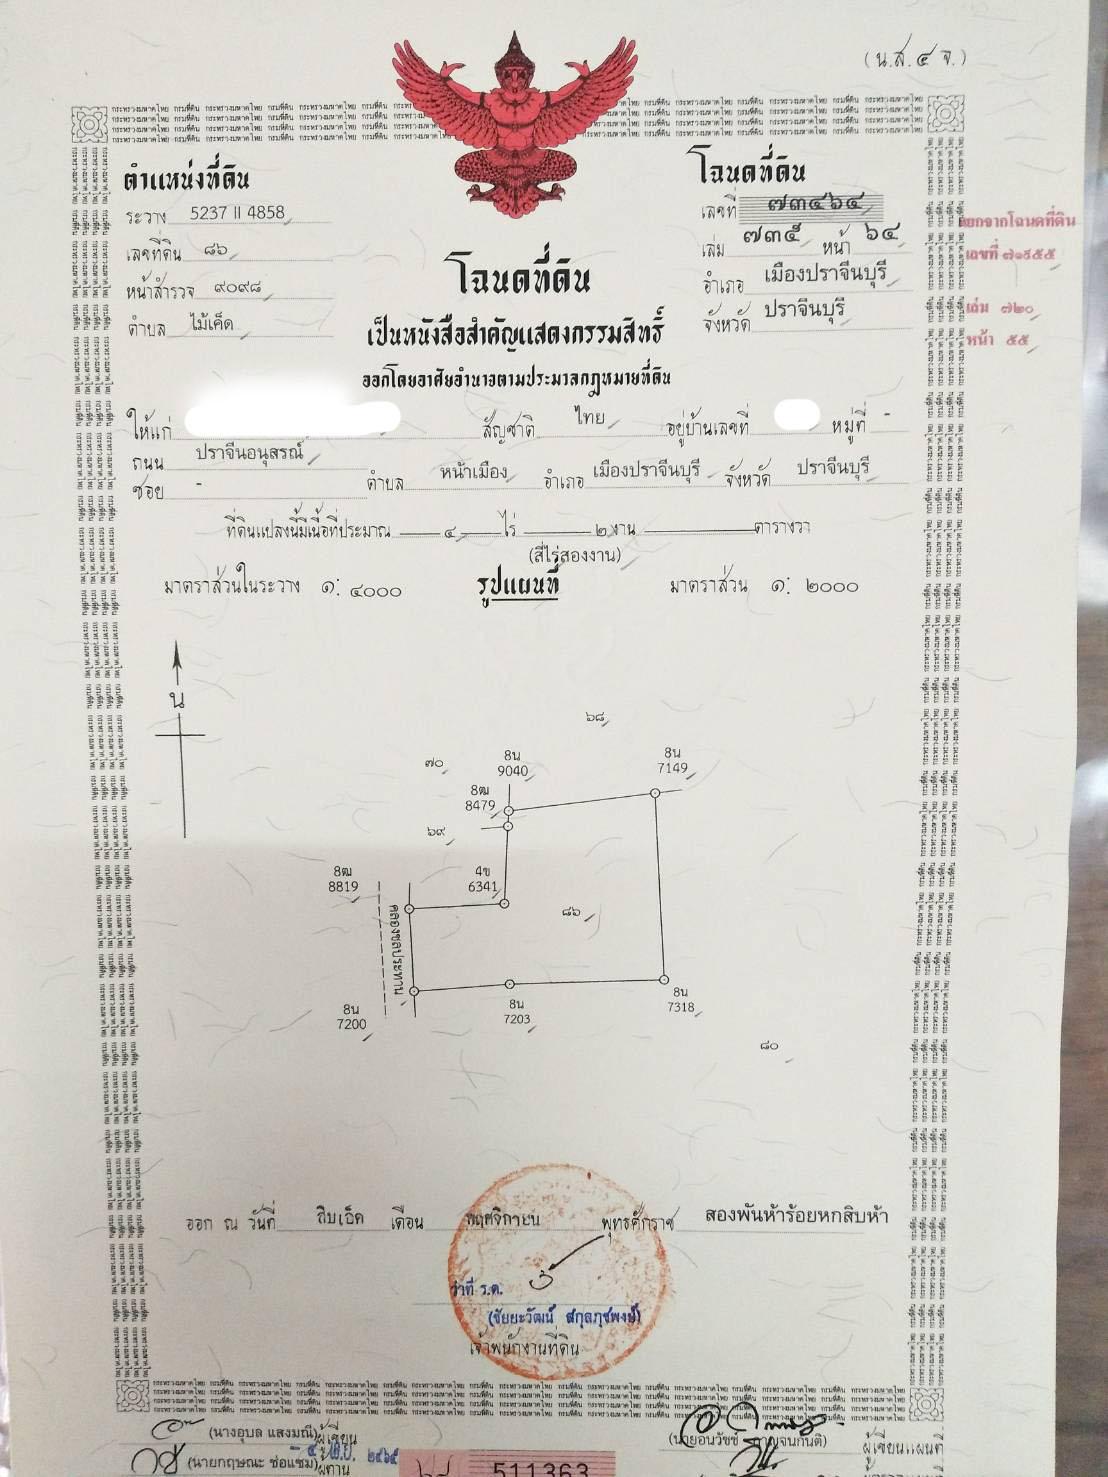 (น.ส.๔ จ.)
ตำแหน่งที่ดิน
ระวาง 5237 II 4858
เลขที่ดิน ๘๖
หน้าสำรวจ ๙๐๙๘
ตำบล ไม้เค็ด
โฉนดที่ดิน
เลขที่ ๗๓๔๖๔
เล่ม ๗๓๕ หน้า ๖๔
อำเภอ เมืองปราจีนบุรี
จังหวัด ปราจีนบุรี
แยกจากโฉนดที่ดิน
เล่ม ๗๒๐
หน้า ๕๕
โฉนดที่ดิน
เป็นหนังสือสำคัญแสดงกรรมสิทธิ์
ออกโดยอาศัยอำนาจตามประมวลกฎหมายที่ดิน
ให้แก่ สัญชาติ ไทย อยู่บ้านเลขที่ หมู่ที่ -
ถนน ปราจีนอนุสรณ์
ซอย - ตำบล หน้าเมือง อำเภอ เมืองปราจีนบุรี จังหวัด ปราจีนบุรี
ที่ดินแปลงนี้มีเนื้อที่ประมาณ ๔ ไร่ ๒ งาน ตารางวา
(สี่ไร่สองงาน)
มาตราส่วนในระวาง ๑: ๔๐๐๐ รูปแผนที่ มาตราส่วน ๑: ๒๐๐๐
น
๖๘
๗๐
8น
9040
8น
7149
8ฒ
8479
๖๙
8ฒ
8819
4ข
6341
๘๖
คลองชลประทาน
8น
7200
8น
7203
8น
7318
๘๐
ออก ณ วันที่ สิบเอ็ด เดือน พฤศจิกายน พุทธศักราช สองพันห้าร้อยหกสิบห้า
ว่าที่ ร.ต.
(ชัยยะวัฒน์ สกุลภุชพงษ์)
เจ้าพนักงานที่ดิน
(นางอุบล แสงมณี) ผู้เขียน
(นายกฤษณะ ช่อแซม) ผู้ทาน
511363
ผู้เขียนแผนที่